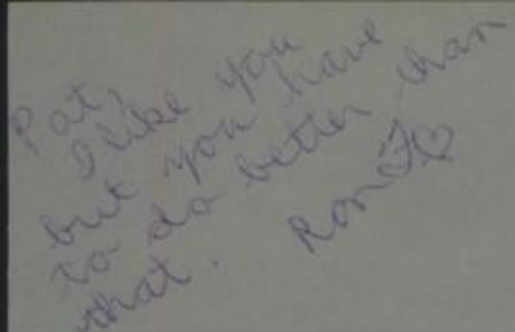 Pat,
I like you
but you have
to do better than
that. Ron